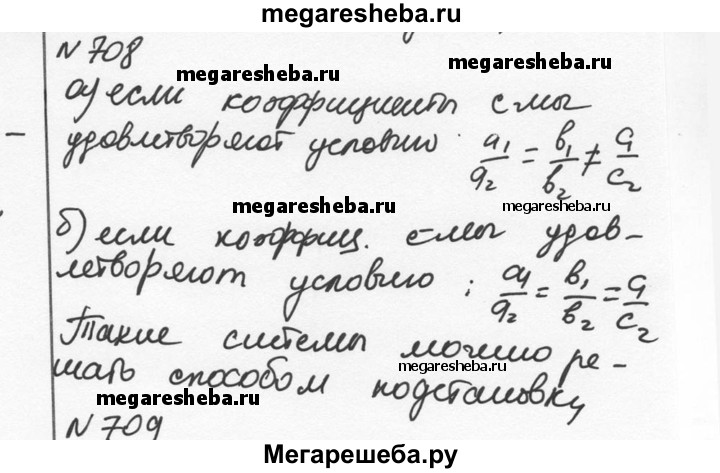 megaresheba.ru
N 708
megaresheba.ru
megaresheba.ru
а) если коэффициенты с-мы
удовлетворяют условию: a₁/a₂ = b₁/b₂ ≠ c₁/c₂
megaresheba.ru
megaresheba.ru
б) если коэффиц. с-мы удов-
летворяют условию: a₁/a₂ = b₁/b₂ = c₁/c₂
Такие системы можно ре-
megaresheba.ru
шать способом подстановки
megaresheba.ru
N 709
Мегарешеба.ру